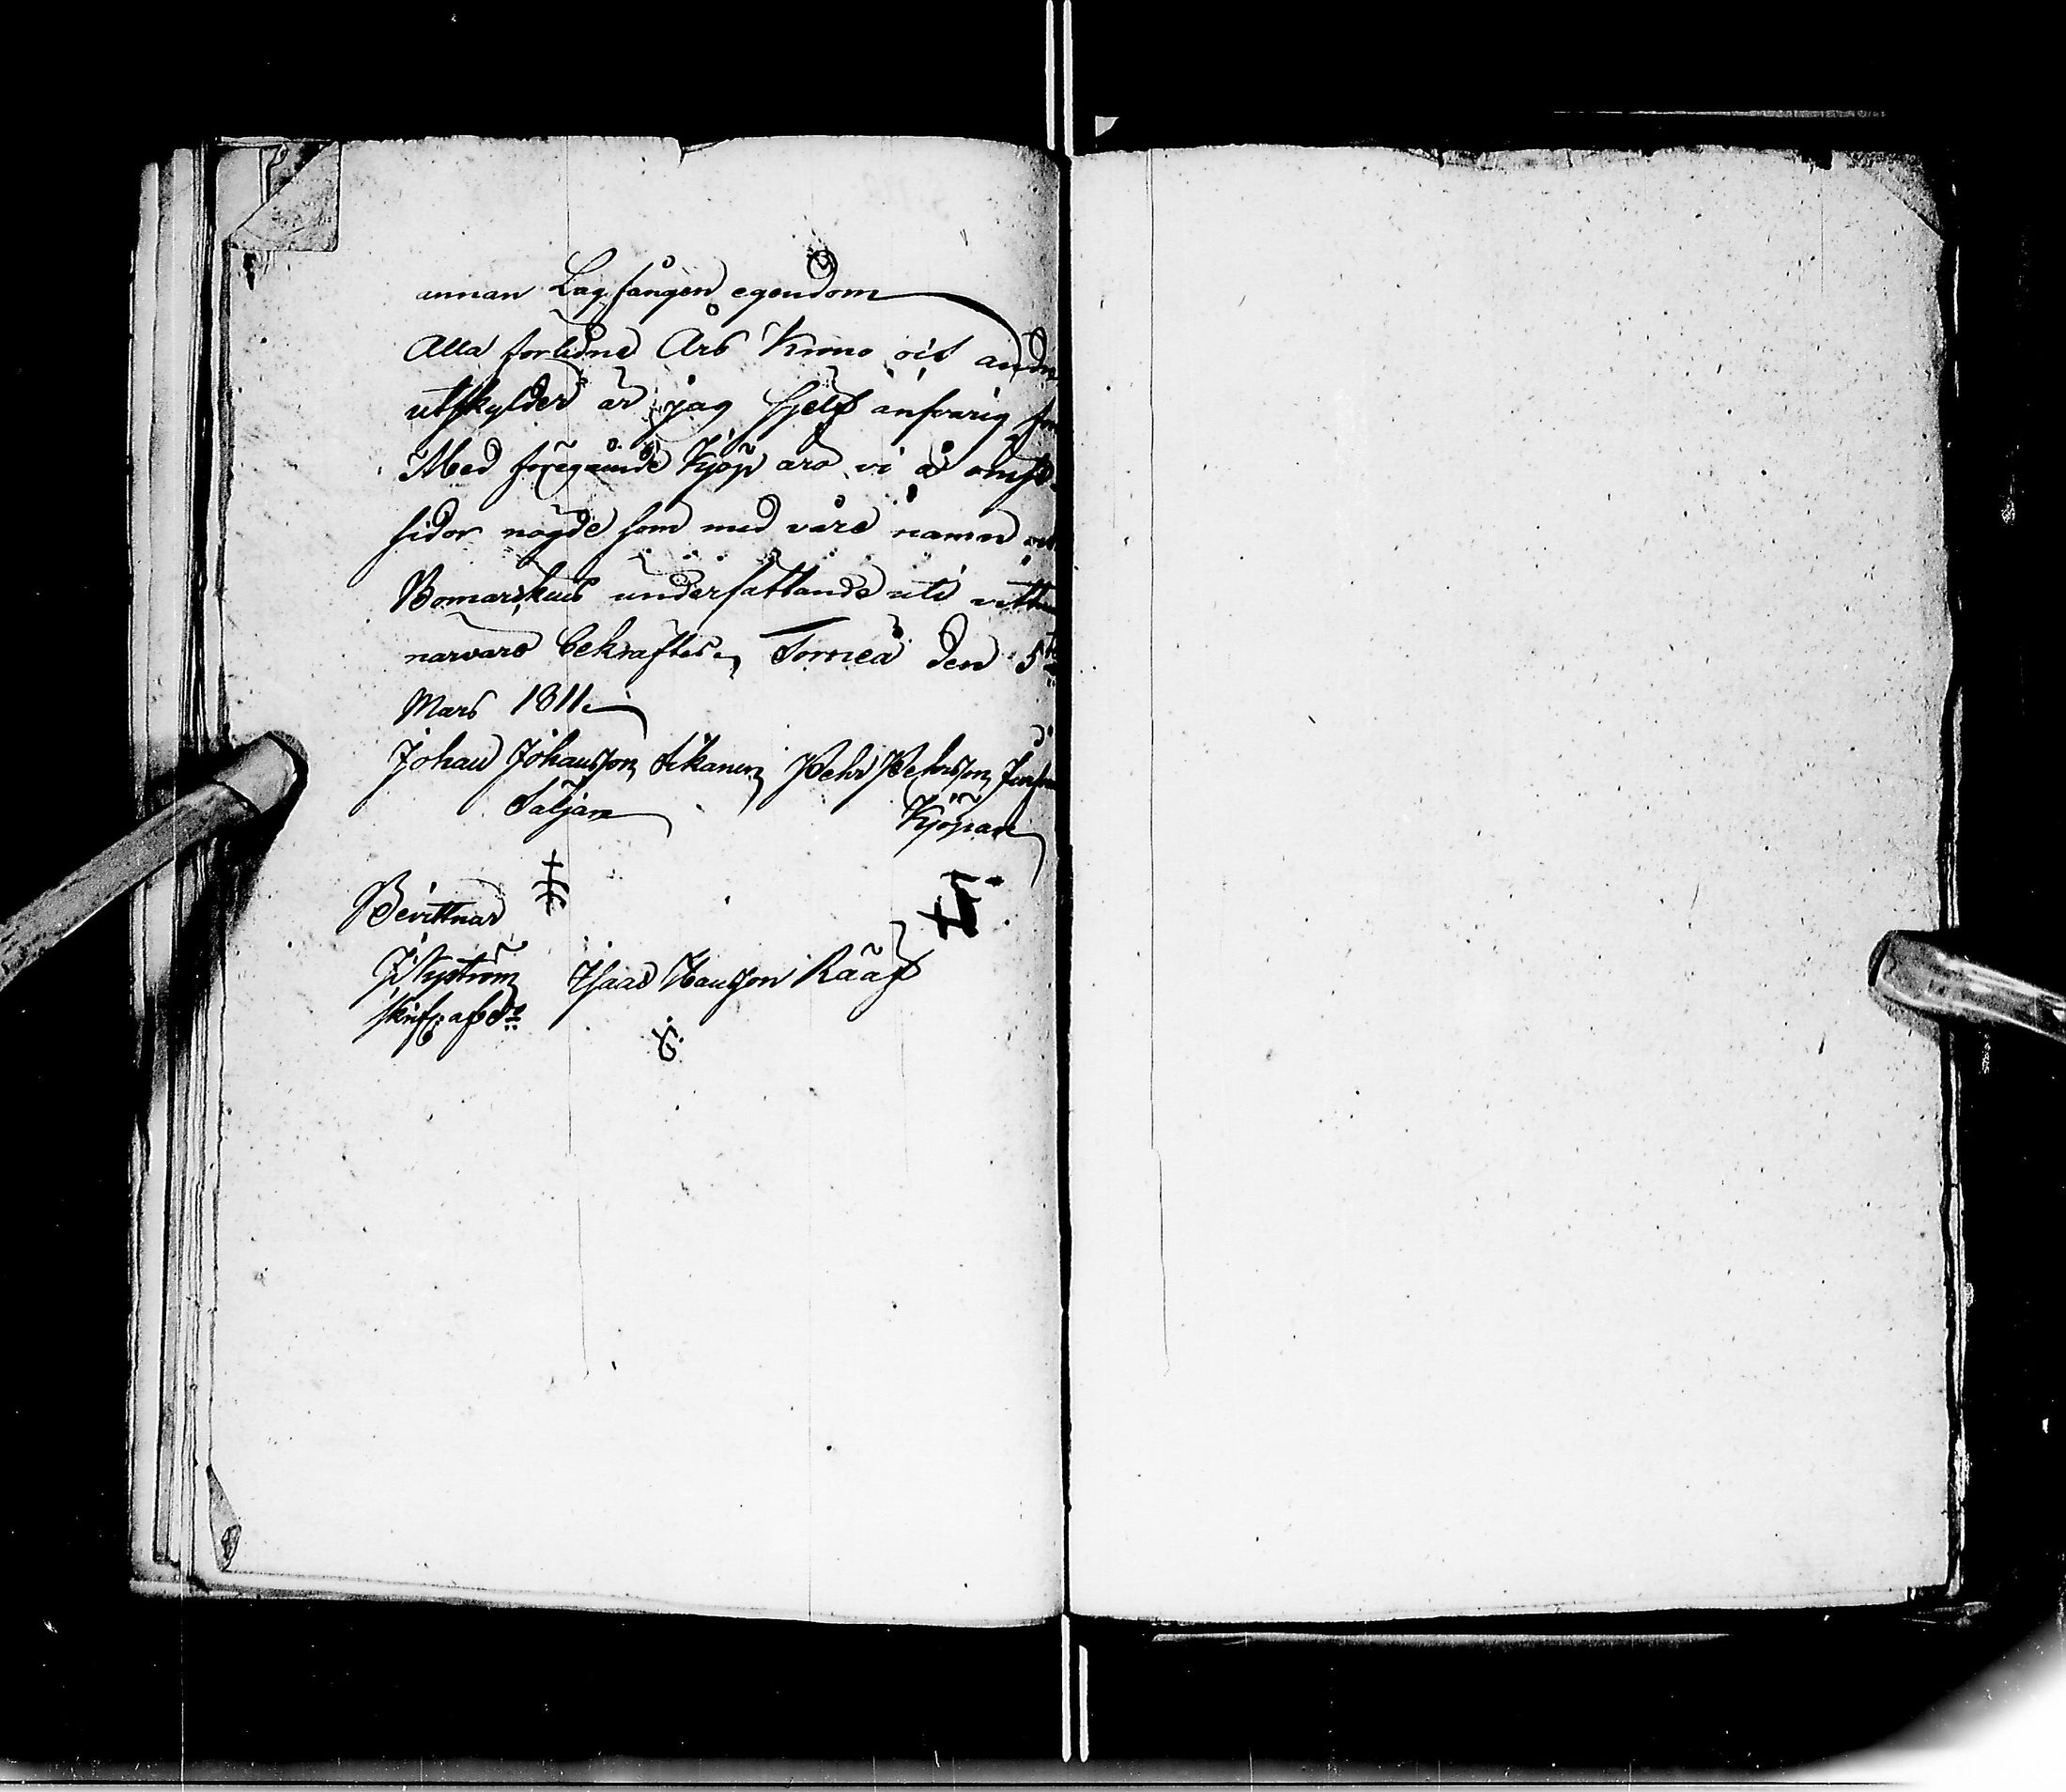 annan Lagfången egendom
Alla förledne Års Krono och andr
utskylder är jag sjelf ansvarig för
Med föregående Kjöp äro vi å ömse
sidor nögde som med våre namn och
Bomärkens undersättande uti vittn
närvaro bekräftes, Torneå den 5te
Mars 1811.
Johan Johansson Sikanen Pehr Pehrsson
Säljare Kjöpare
Bevittnar
J Nyström Isaac Hansson Rååf
Skrif: